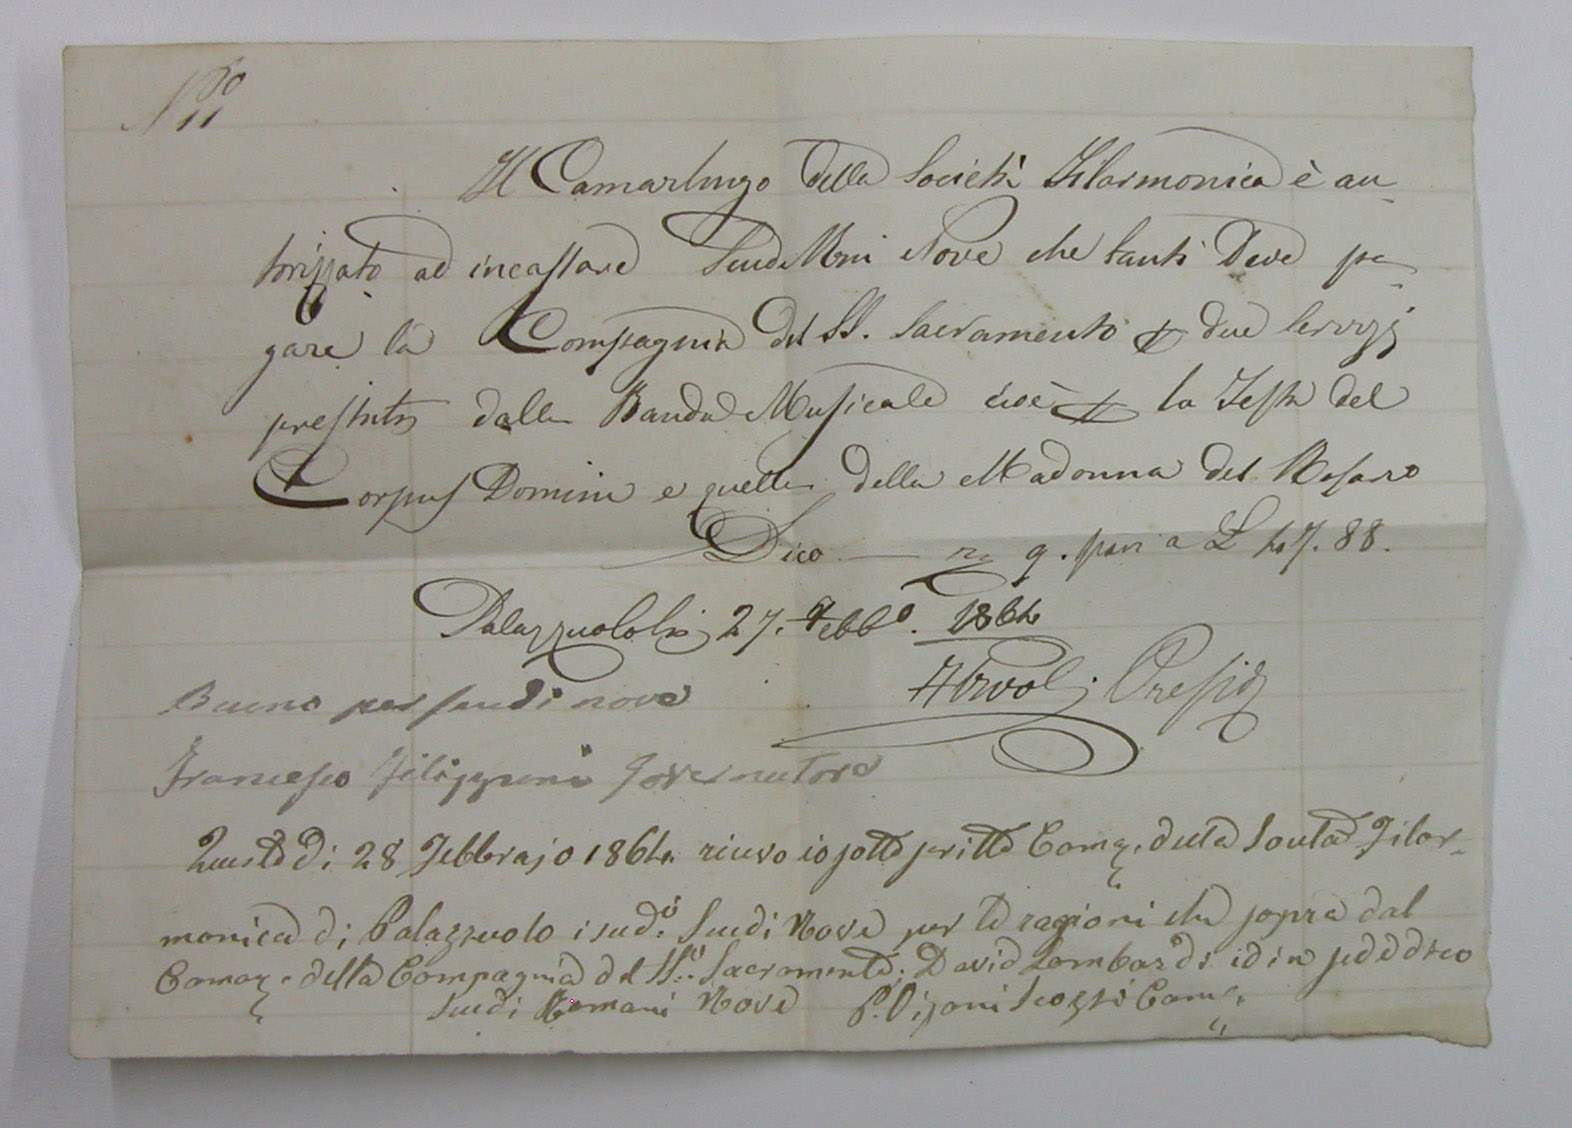 N.ro 11
Il Camarlingo della Società Filarmonica è au-
torizzato ad incassare Scudi Rmni Nove che tanti Deve pa-
gare la Compagnia del SS. Sacramento p due Servizj
prestati dalla Banda Musicale cioè p la Festa del
Corpus Domini e quella della Madonna del Rosario
Dico — 9. pari a £ 47.88.
Palazzuolo li 27. Febb.o 1864
Presid
Buono per scudi nove
Francesco Filippini Governatore
Questo Dì 28 Febbrajo 1864 ricevo io sotto scritto Camg. della Società Filar-
monica di Palazzuolo i sud.i Scudi Nove per le ragioni che sopra dal
Camg. della Compagnia del SS.o Sacramento. David Lombardi io dico
Scudi Romani Nove P. Pisoni Scozzi Cam.